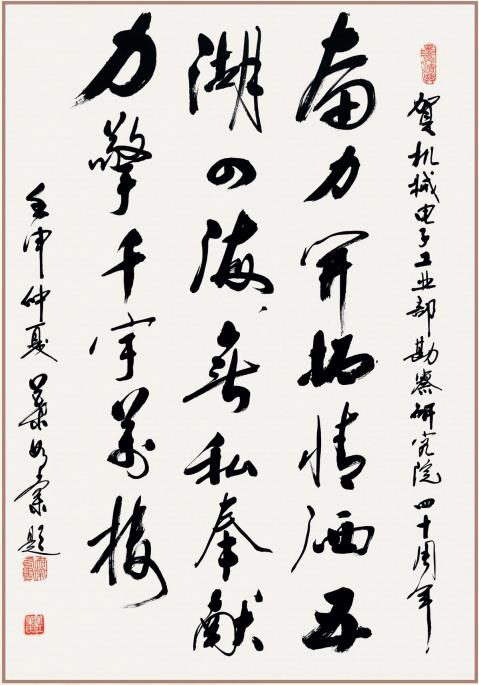 贺机械电子工业部勘察研究院四十周年
奋力開拓情洒五
湖四海無私奉献
力擎千宇萬楼
壬申仲夏 葉如棠题